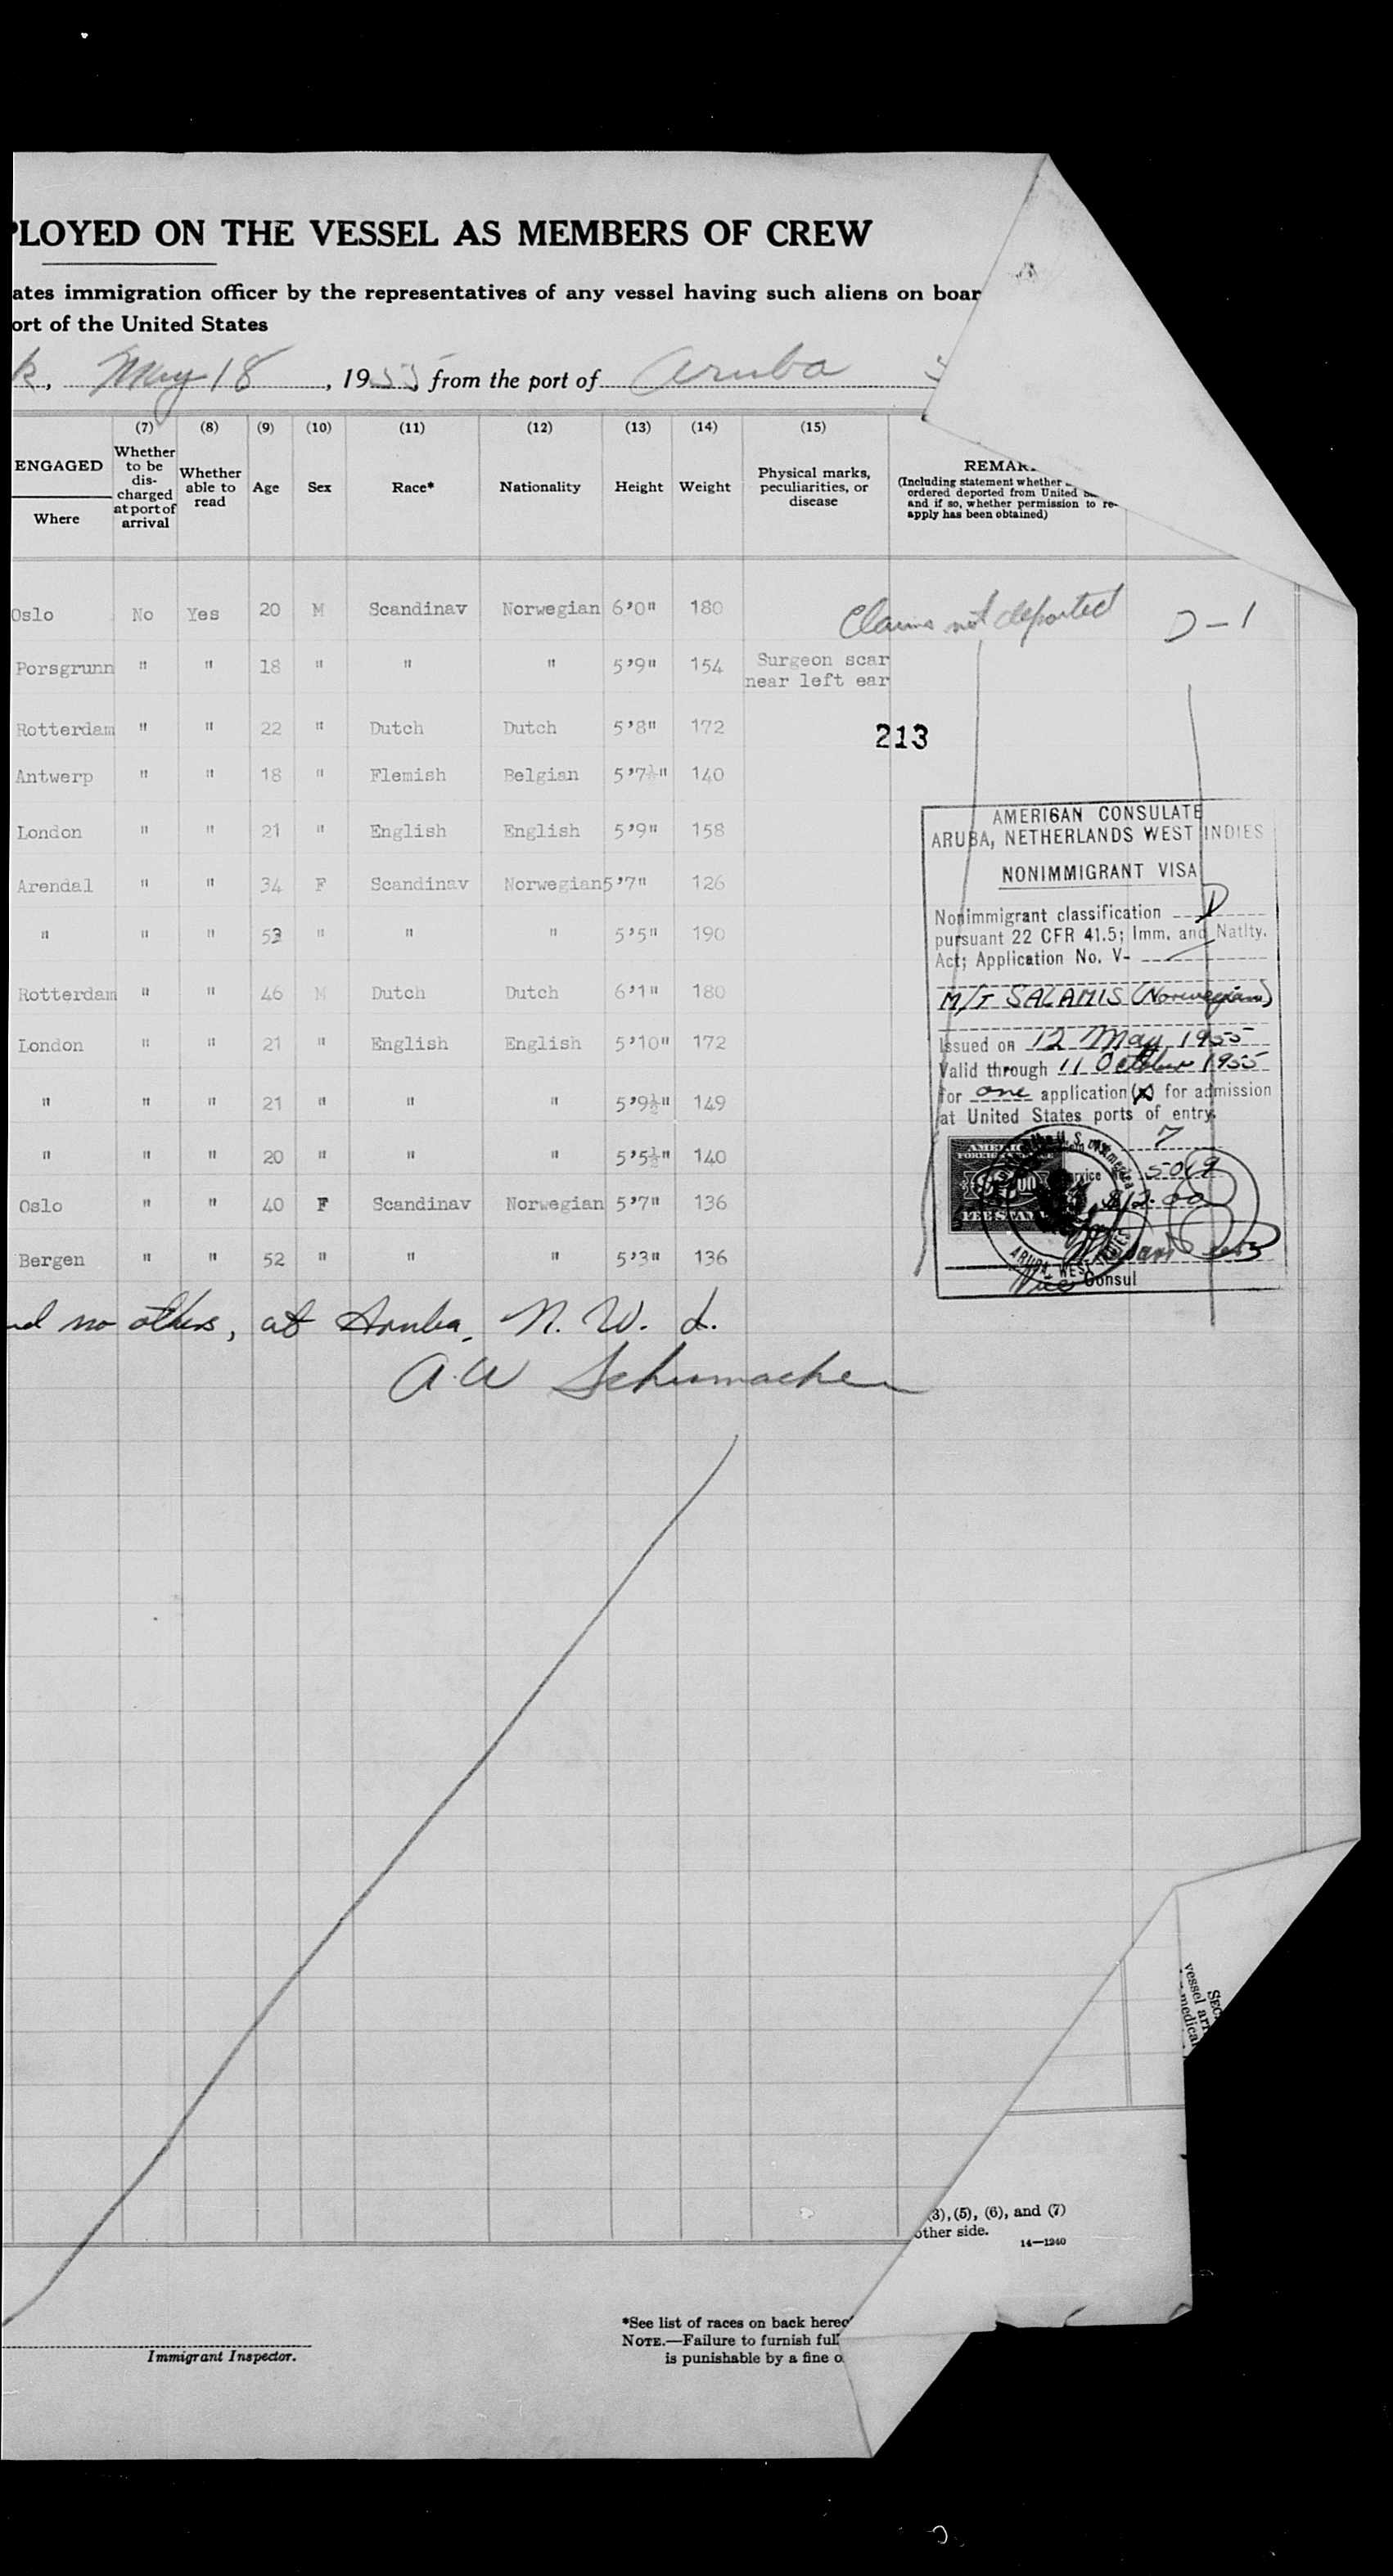 PLOYED ON THE VESSEL AS MEMBERS OF CREW
ates immigration officer by the representatives of any vessel having such aliens on boar
ort of the United States
k, May 18, 1955 from the port of Aruba
ENGAGED
Where
(7) Whether to be dis-charged at port of arrival
(8) Whether able to read
(9) Age
(10) Sex
(11) Race*
(12) Nationality
(13) Height
(14) Weight
(15) Physical marks, peculiarities, or disease
REMAR
(Including statement whether
ordered deported from United
and if so, whether permission to re-
apply has been obtained)
Oslo No Yes 20 M Scandinav Norwegian 6'0" 180
Claims not deported D-1
Porsgrunn " " 18 " " " 5'9" 154 Surgeon scar
near left ear
Rotterdam " " 22 " Dutch Dutch 5'8" 172
213
Antwerp " " 18 " Flemish Belgian 5'7½" 140
London " " 21 " English English 5'9" 158
Arendal " " 34 F Scandinav Norwegian 5'7" 126
" " " 53 " " " 5'5" 190
Rotterdam " " 46 M Dutch Dutch 6'1" 180
London " " 21 " English English 5'10" 172
" " " 21 " " " 5'9½" 149
" " " 20 " " " 5'5½" 140
Oslo " " 40 F Scandinav Norwegian 5'7" 136
Bergen " " 52 " " " 5'3" 136
AMERICAN CONSULATE
ARUBA, NETHERLANDS WEST INDIES
NONIMMIGRANT VISA
Nonimmigrant classification D
pursuant 22 CFR 41.5; Imm. and Natlty.
Act; Application No. V-
M/T SALAMIS (Norwegian)
Issued on 12 May 1955
Valid through 11 October 1955
for one application(x) for admission
at United States ports of entry.
7
5019
$12.00
ARUBA, WEST INDIES
Vice Consul
nd no others, at Aruba, N. W. I.
A. W Schumacher
SEC.
vessel arr
medical
(3), (5), (6), and (7)
other side.
14—1240
Immigrant Inspector.
*See list of races on back hereo
NOTE.—Failure to furnish full
is punishable by a fine o